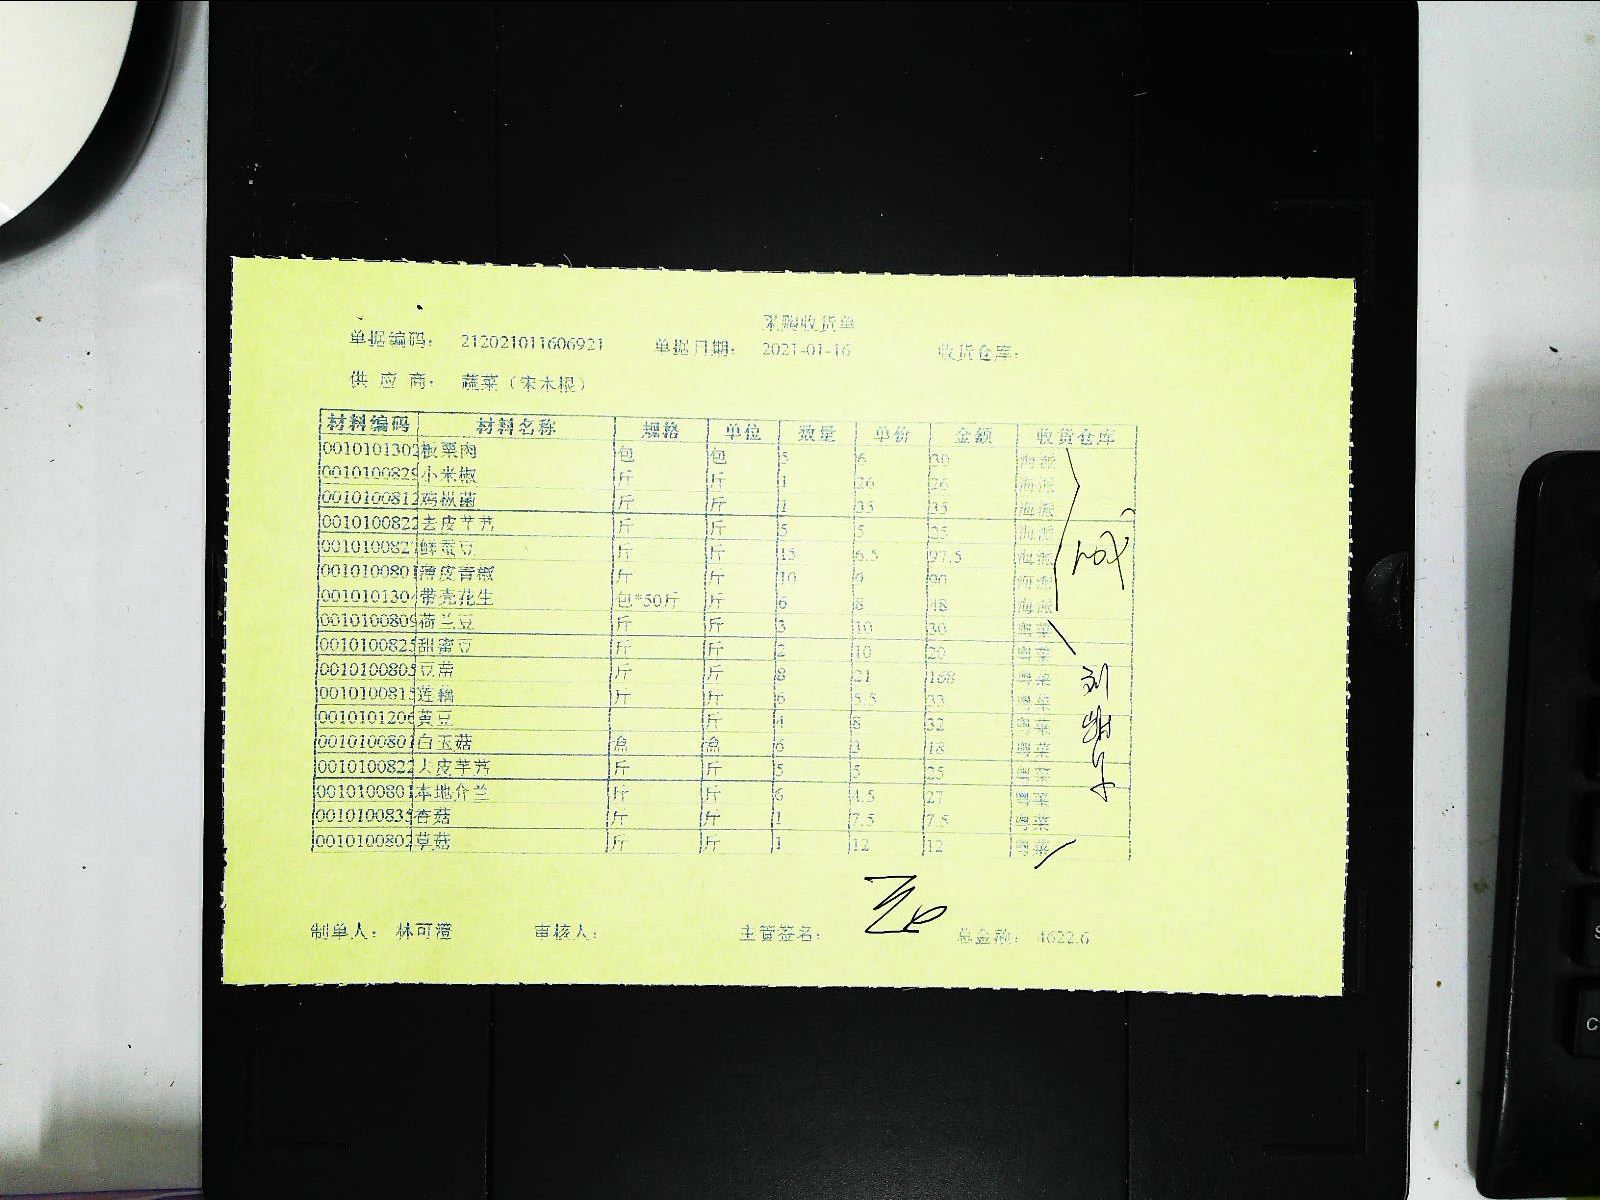 采购收货单
单据编码： 212021011606921 单据日期： 2021-01-16 收货仓库：
供 应 商： 蔬菜（宋木根）
材料编码 材料名称 规格 单位 数量 单价 金额 收货仓库
0010101302 板栗肉 包 包 5 6 30 海派
0010100829 小米椒 斤 斤 1 26 26 海派
0010100812 鸡枞菌 斤 斤 1 35 35 海派
0010100822 去皮芋艿 斤 斤 5 5 25 海派
001010082 鲜蚕豆 斤 斤 15 6.5 97.5 海派
0010100801 薄皮青椒 斤 斤 10 9 90 海派
001010130 带壳花生 包*50斤 斤 6 8 48 海派
0010100809 荷兰豆 斤 斤 3 10 30 粤菜
0010100825 甜蜜豆 斤 斤 2 10 20 粤菜
0010100805 豆苗 斤 斤 8 21 168 粤菜
0010100815 莲藕 斤 斤 6 5.5 33 粤菜
0010101206 黄豆 斤 4 8 32 粤菜
0010100801 白玉菇 盒 盒 6 3 18 粤菜
0010100822 去皮芋艿 斤 斤 5 5 25 粤菜
0010100801 本地介兰 斤 斤 6 4.5 27 粤菜
0010100835 杏菇 斤 斤 1 7.5 7.5 粤菜
0010100802 草菇 斤 斤 1 12 12 粤菜
制单人： 林可澄 审核人： 主管签名： 总金额： 4622.6